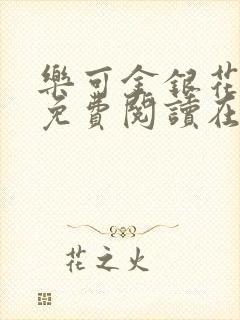 樂可金銀花
免費閱讀在
花之火